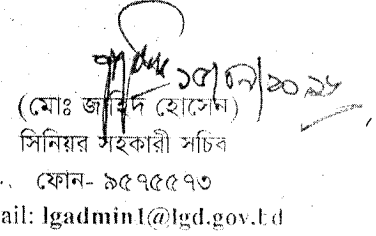 ১৫/০৭/২০১৮
(মোঃ জাহিদ হোসেন)
সিনিয়র সহকারী সচিব
ফোন- ৯৫৭৫৫৭৩
ail: lgadmin1@lgd.gov.bd